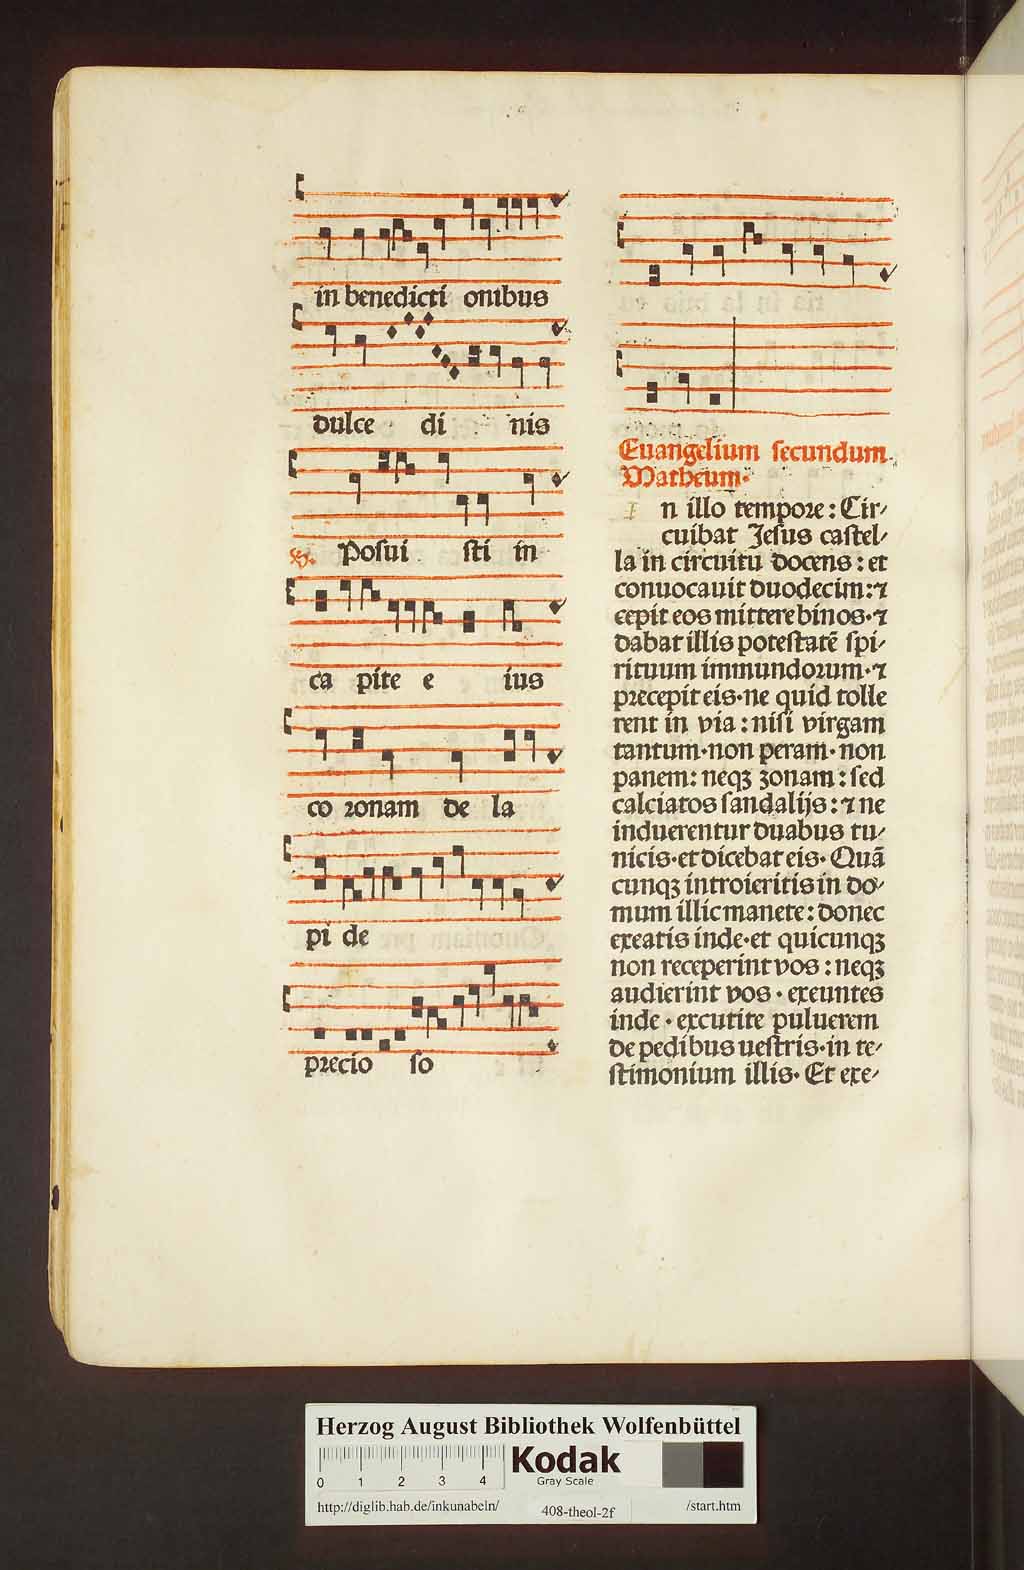 in benedicti onibus
dulce di nis
℟. Posui sti in
ca pite e ius
co ꝛonam de la
pi de
pꝛecio so
Euangelium secundum
Matheum.
I n illo tempoꝛe: Cir⸗
cuibat Jesus castel⸗
la in circuitu docens: et
conuocauit duodecim: ⁊
cepit eos mittere binos. ⁊
dabat illis potestatē spi⸗
rituum immundoꝛum. ⁊
pꝛecepit eis. ne quid tolle
rent in via: nisi virgam
tantum. non peram. non
panem: neqꝫ zonam: sed
calciatos sandalijs: ⁊ ne
induerentur duabus tu⸗
nicis. et dicebat eis. Quā
cunqꝫ introieritis in do⸗
mum illic manete: donec
exeatis inde. et quicunqꝫ
non receperint vos: neqꝫ
audierint vos. exeuntes
inde. excutite puluerem
de pedibus uestris. in te⸗
stimonium illis. Et exe⸗
Herzog August Bibliothek Wolfenbüttel
0 1 2 3 4
Kodak
Gray Scale
http://diglib.hab.de/inkunabeln/ 408-theol-2f /start.htm